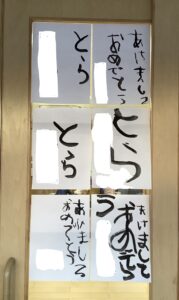 あけまして
おめでとう
とら
とら
とら
あけまして
おめでと
う
あけまして
おめでとう